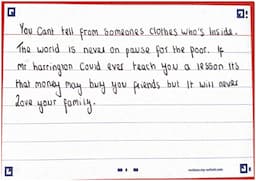 You Cant tell from Someones clothes who's Inside.
The world is never on pause for the poor. If
Mr harrington Could ever teach you a lesson Its
that money may buy you friends but It will never
love your family.